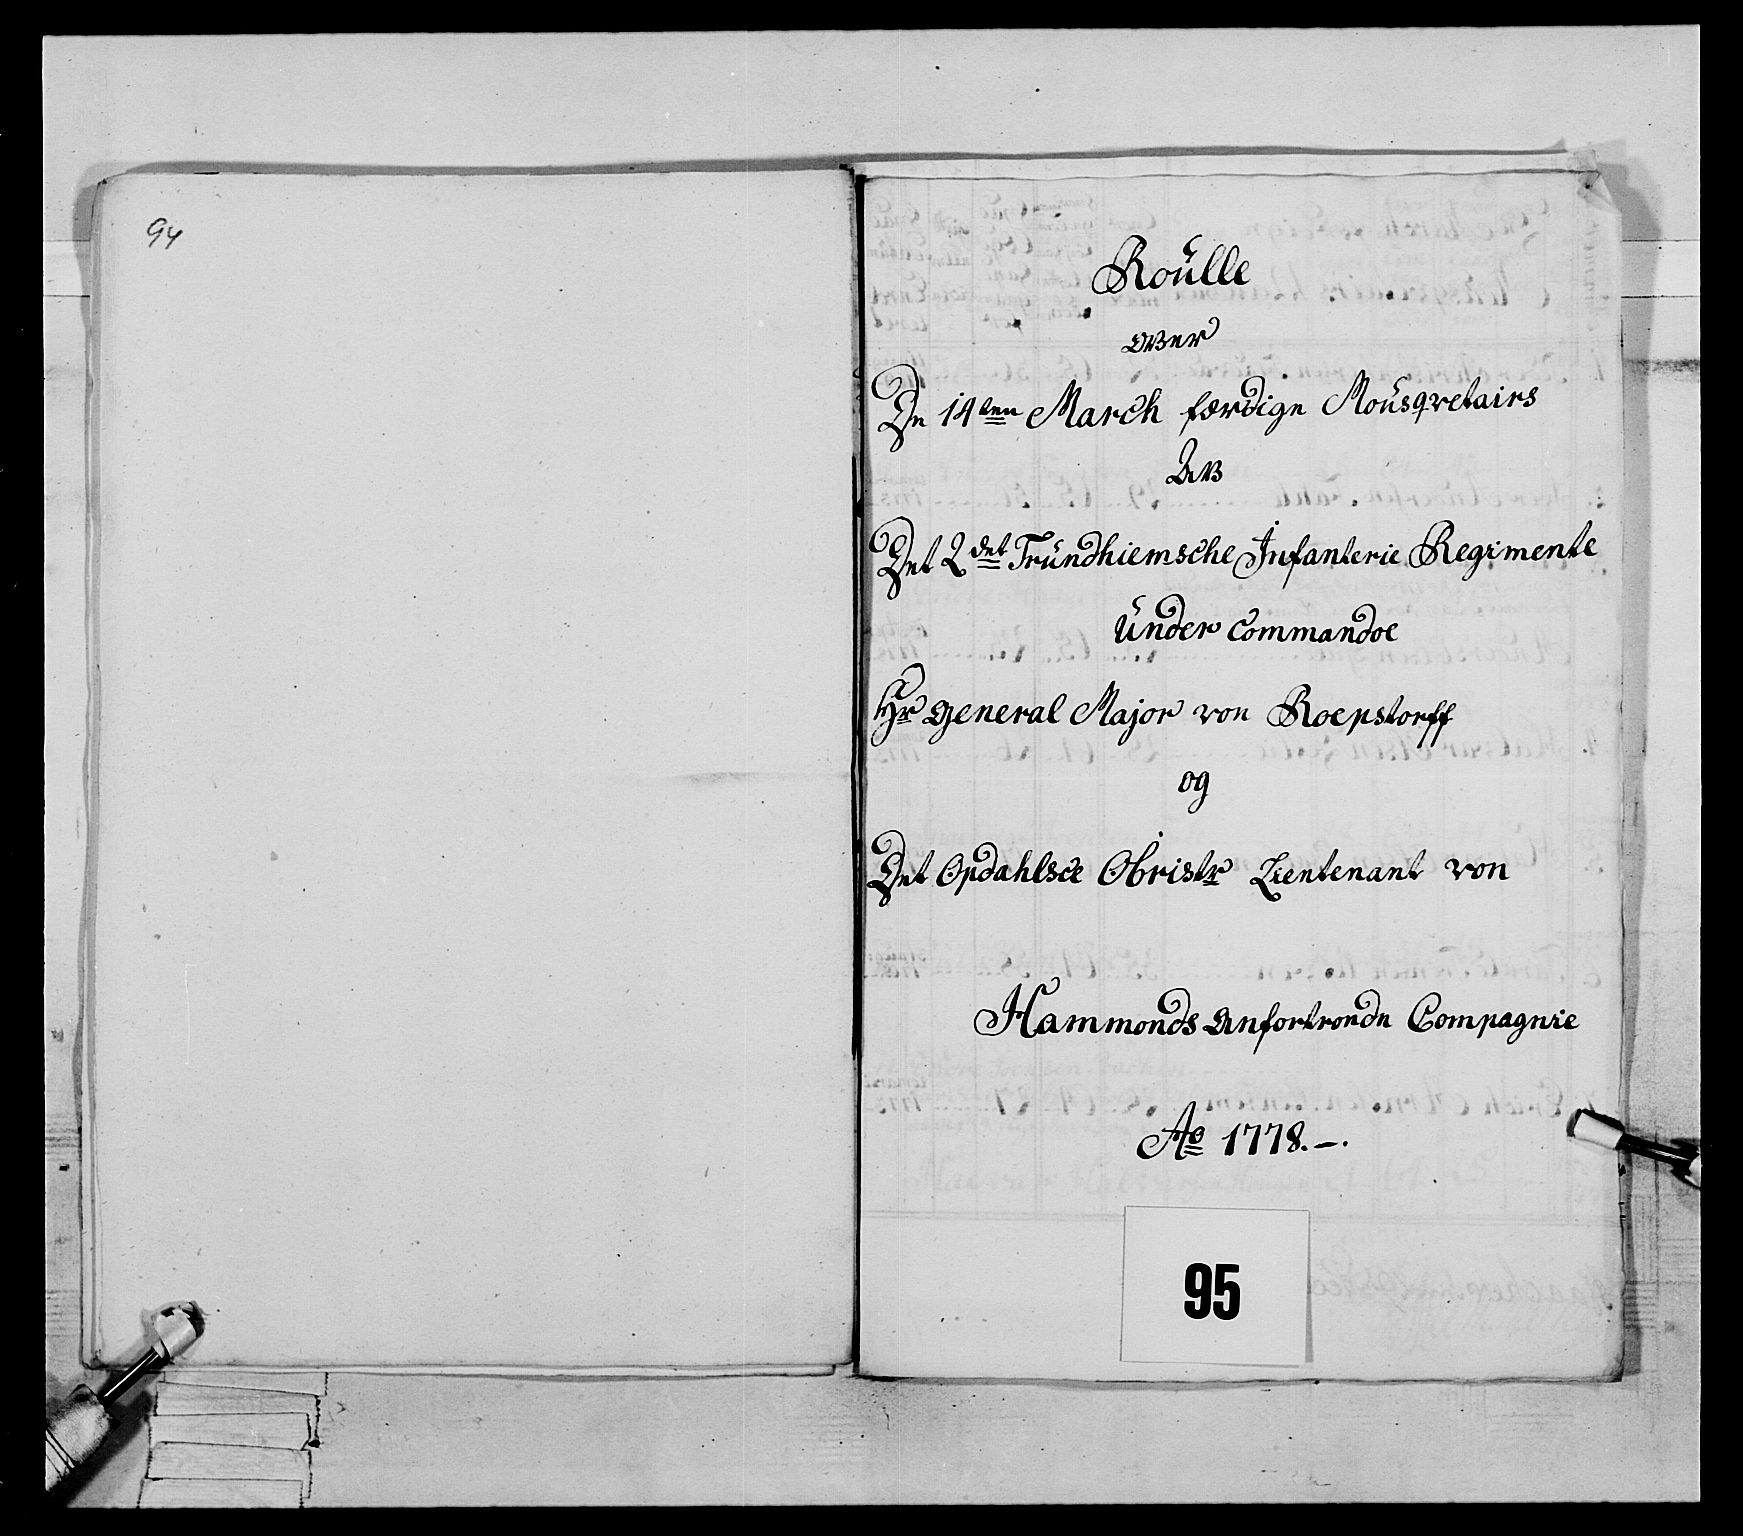 94
Roülle
over
De 14ten March færdige Mousqvetairs
Av
Det 2det Tründhiemsche Infanterie Regimente
Ünder Commandoe
Hr General Major von Roepstorff
og
Det Opdahlsce Obristr Lientenant von
Hammonds anfortronde Compagnie
Ao 1778.-.
95